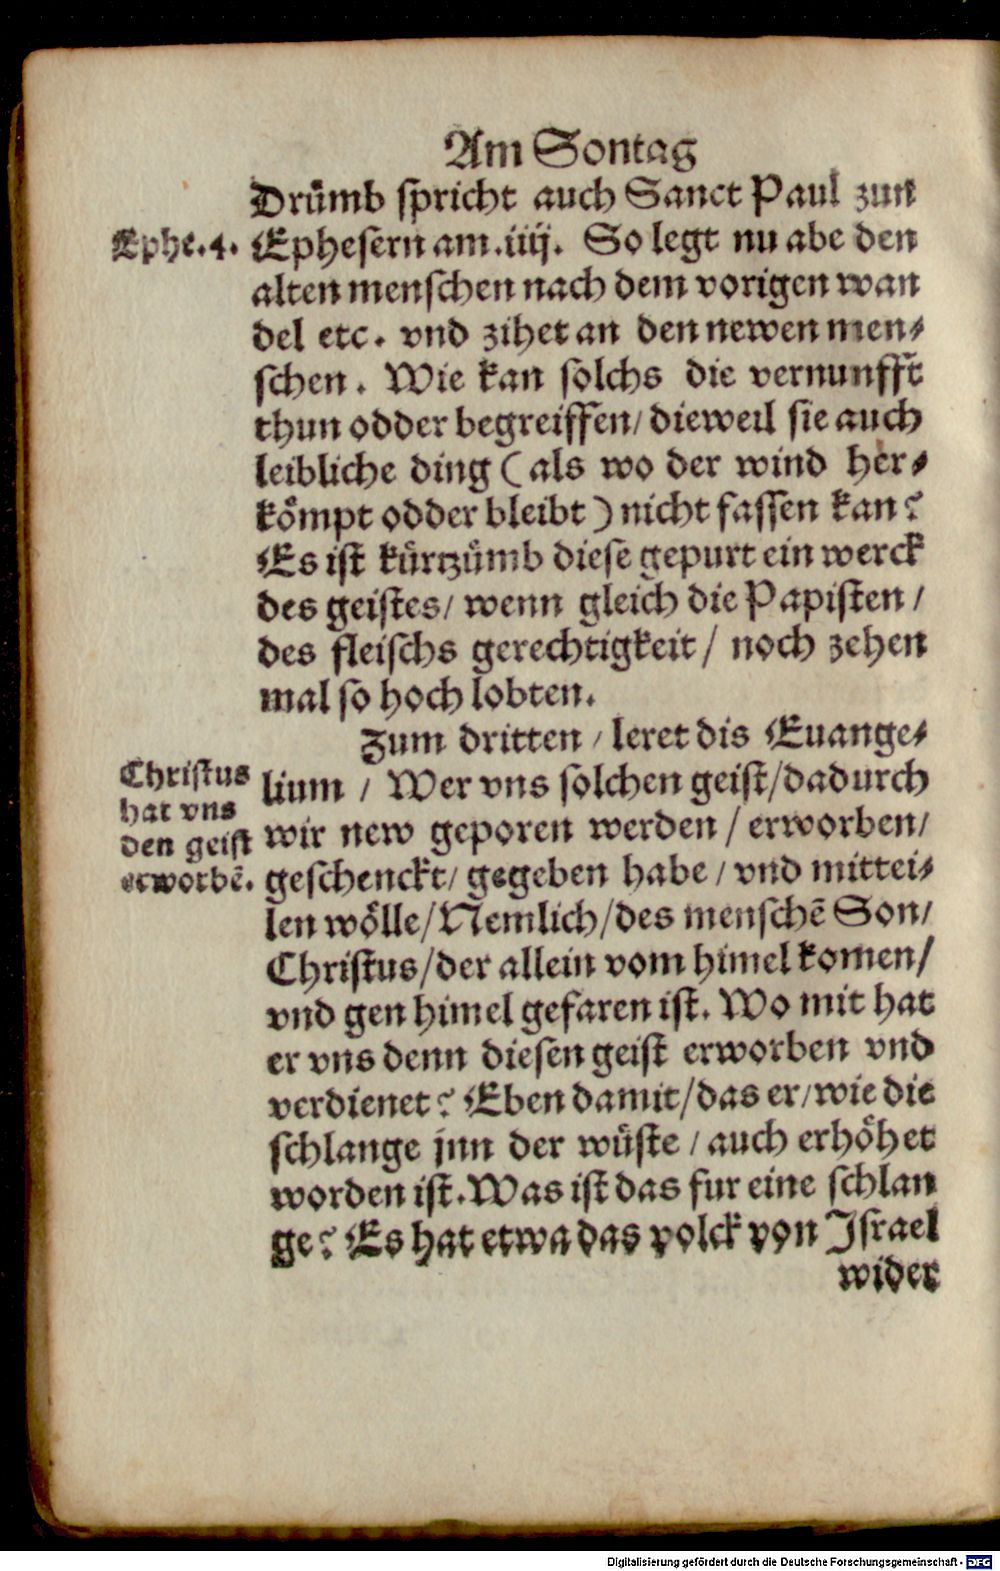 Am Sontag
Drůmb spricht auch Sanct Paul zun
Ephe.4.
Ephesern am.iiij. So legt nu abe den
alten menschen nach dem vorigen wan
del etc. vnd zihet an den newen men-
schen. Wie kan solchs die vernunfft
thun odder begreiffen/ dieweil sie auch
leibliche ding (als wo der wind her-
kömpt odder bleibt) nicht fassen kan?
Es ist kürtzümb diese gepurt ein werck
des geistes/ wenn gleich die Papisten/
des fleischs gerechtigkeit/ noch zehen
mal so hoch lobten.
Zum dritten/ leret dis Euange-
Christus
hat vns
den geist
erworbē.
lium/ Wer vns solchen geist/dadurch
wir new geporen werden/ erworben/
geschenckt/ gegeben habe/ vnd mittei-
len wölle/Nemlich/des menschē Son/
Christus/der allein vom himel komen/
vnd gen himel gefaren ist. Wo mit hat
er vns denn diesen geist erworben vnd
verdienet? Eben damit/das er/wie die
schlange jnn der wüste/ auch erhöhet
worden ist. Was ist das fur eine schlan
ge? Es hat etwa das volck von Israel
wider
Digitalisierung gefördert durch die Deutsche Forschungsgemeinschaft - DFG